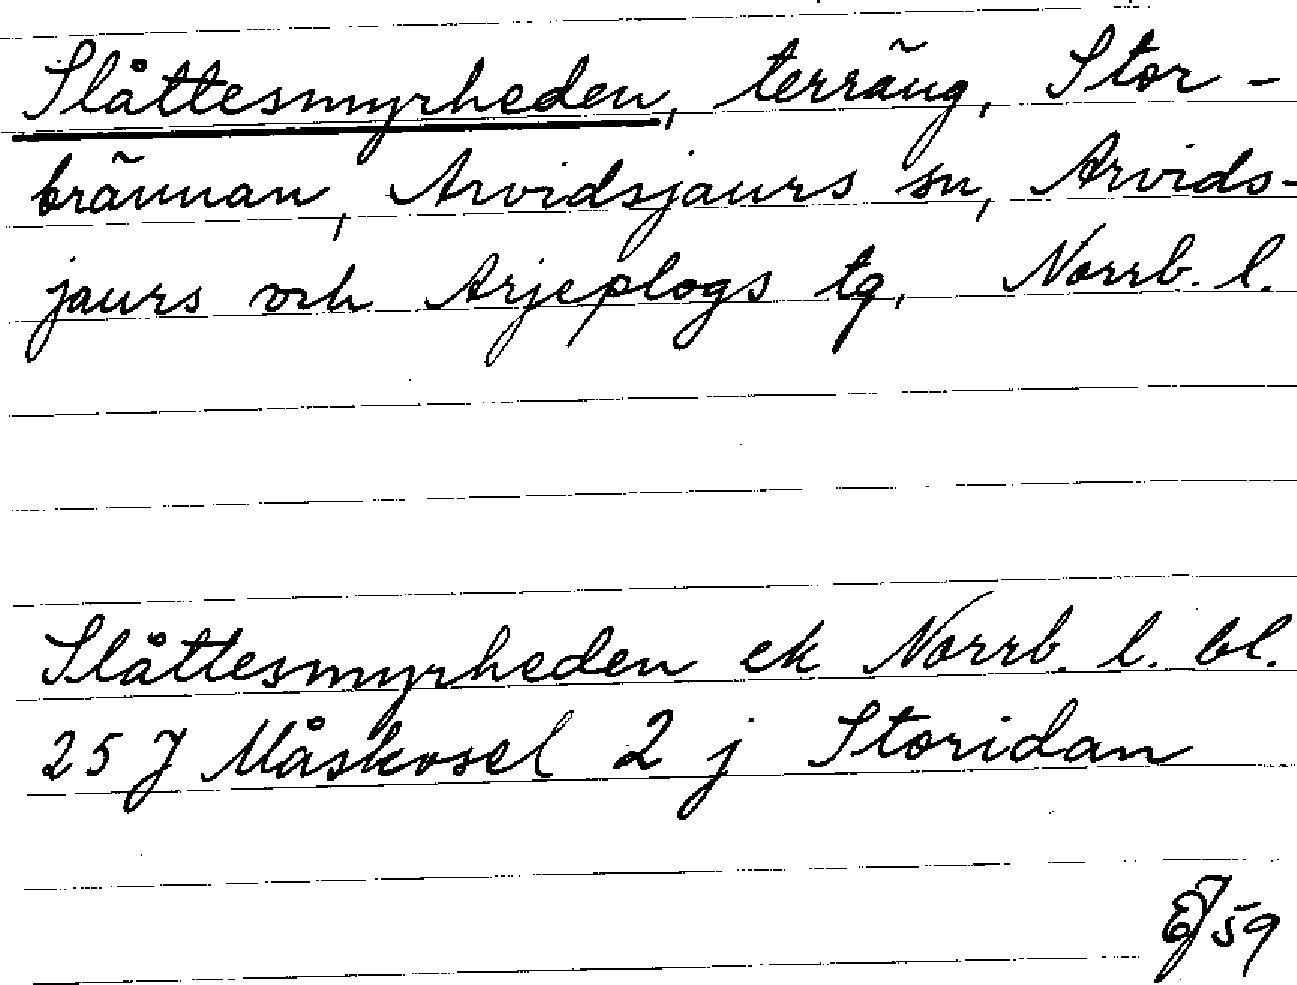 Slåttesmyrheden, terräng, Stor-
brännan, Arvidsjaurs sn, Arvids-
jaurs och Arjeplogs tg, Norrb. l.
Slåttesmyrheden ek Norrb. l. bl.
25 J Måskosel 2 j Storidan
59